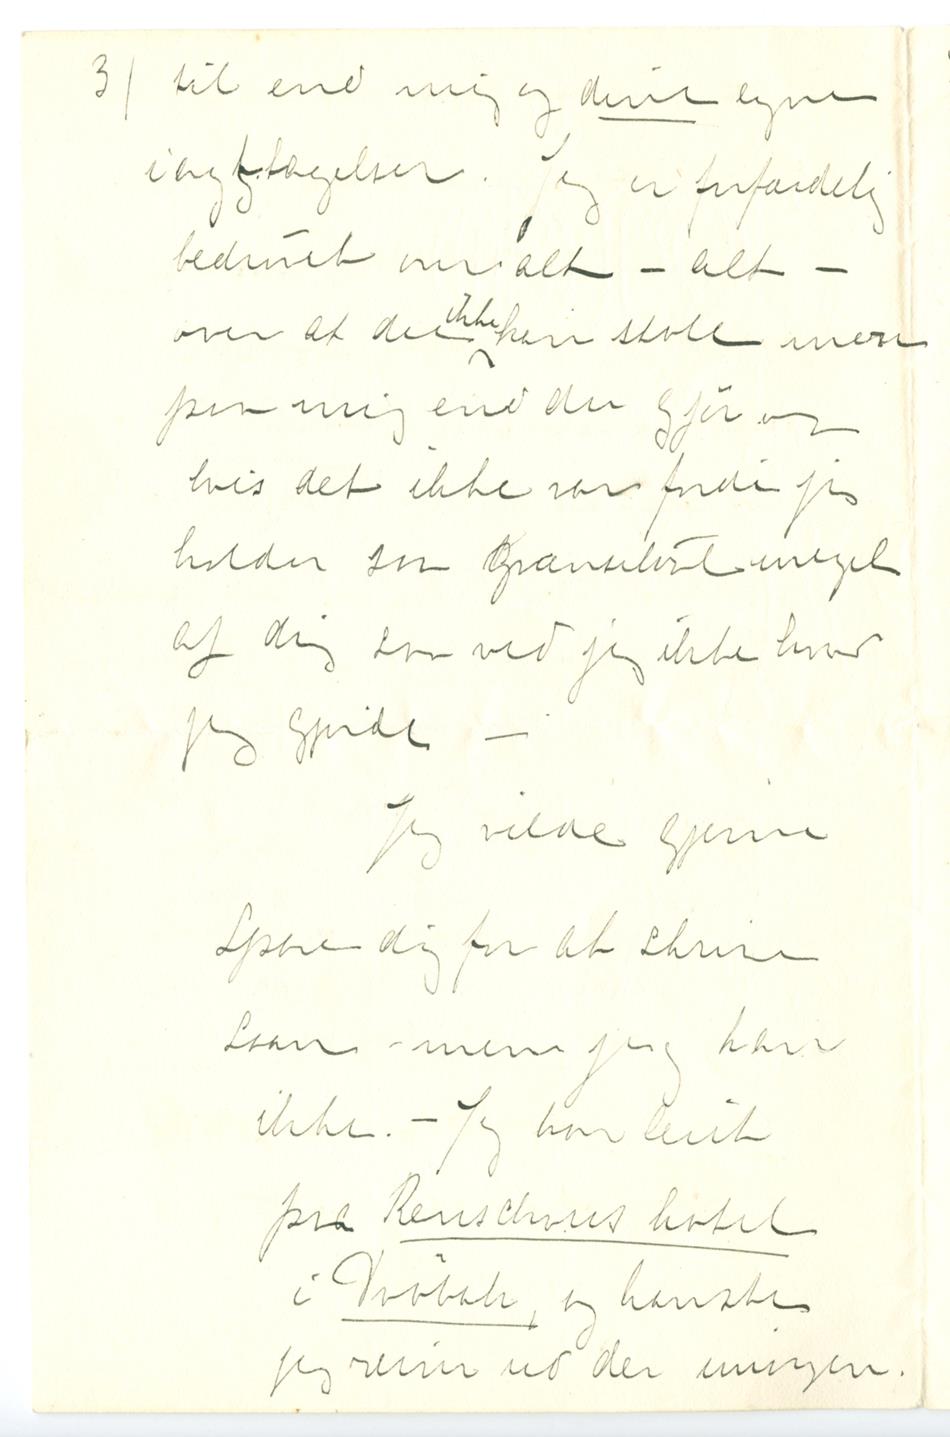 3/ til end mig og dine egne
iagttagelser. Jeg er forfærdelig
bedrövet over alt – alt –
over at du ikke kan stole mere
paa mig end du gjör og
hvis det ikke var fordi jeg
holder saa grænselöst meget
af dig saa ved jeg ikke hvad
jeg gjorde –
Jeg vilde gjerne
spare dig for at skrive
saan – men jeg kan
ikke. – Jeg har leiet
paa hotel
i Dröbak, og kanske
jeg reiser ud der imorgen.